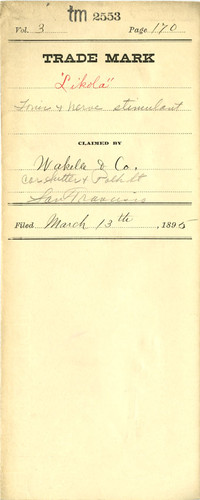 tm 2553
Vol. 3 Page 170
TRADE MARK
"Likola"
Tonic & Nerve stimulant
CLAIMED BY
Wakelee & Co.
Cor Sutter & Polk St
San Francisco
Filed March 13th, 1895